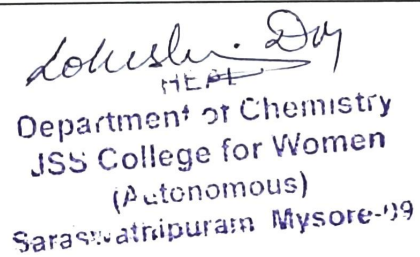 HEAD
Department of Chemistry
JSS College for Women
(Autonomous)
Saraswathipuram Mysore-09